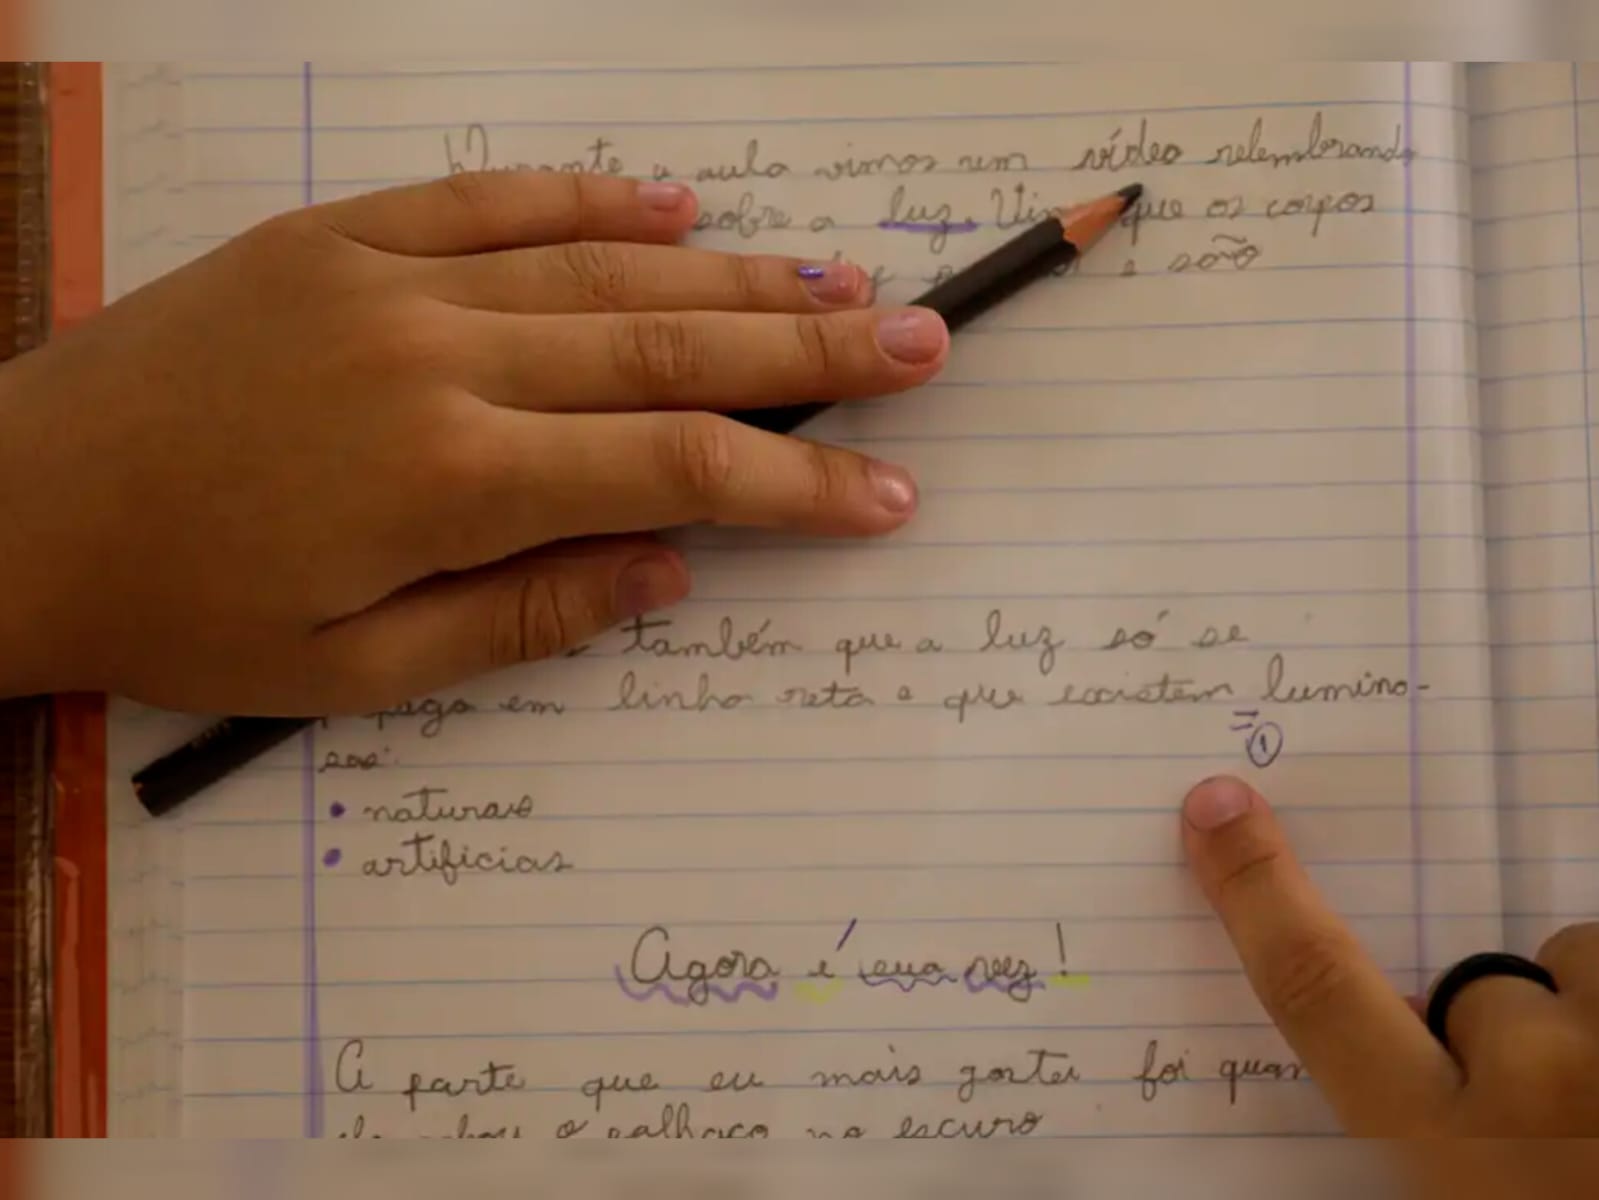 Durante a aula vimos um vídeo relembrando
sobre a luz. que os corpos
e são
também que a luz só se
em linha reta e que existem lumino-
sos:
• naturais
• artificias
= ①
Agora é sua vez!
A parte que eu mais gostei foi
o palhaço no escuro